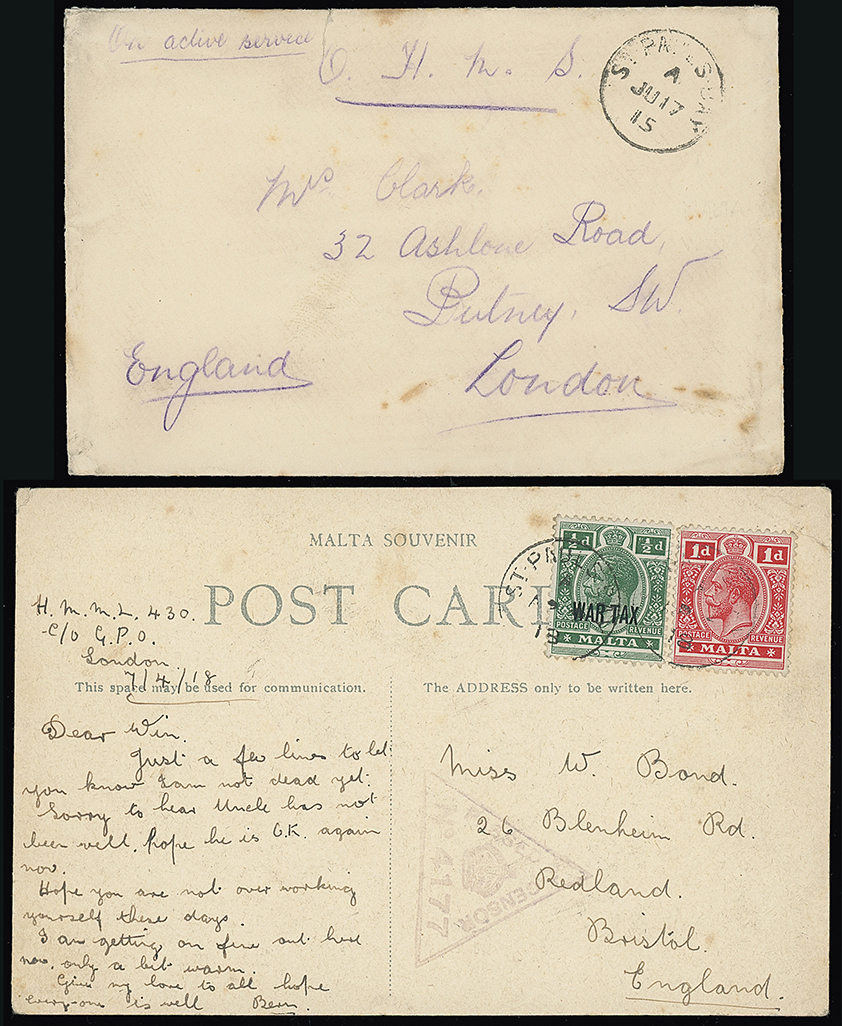 On active service
O. H. M. S.
ST. PAUL'S BAY
A
JU 17
15
Mrs Clark.
32 Ashlone Road,
Putney, SW.
England
London
MALTA SOUVENIR
POST CARD
H. M. M. L. 430.
C/o G.P.O.
London.
7/4/18
½d ½d
WAR TAX
POSTAGE REVENUE
MALTA
1d 1d
POSTAGE REVENUE
MALTA
ST. PAUL'S
18
This space may be used for communication.
The ADDRESS only to be written here.
Dear Win.
Just a few lines to let
you know I am not dead yet.
Sorry to hear Uncle has not
been well, hope he is O.K. again
now.
Hope you are not over working
yourself these days.
I am getting on fine out here
now, only a bit warm.
Give my love to all hope
every-one is well Bern.
Miss W. Bond.
26 Blenheim Rd.
Redland.
Bristol.
England.
PASSED CENSOR
4177